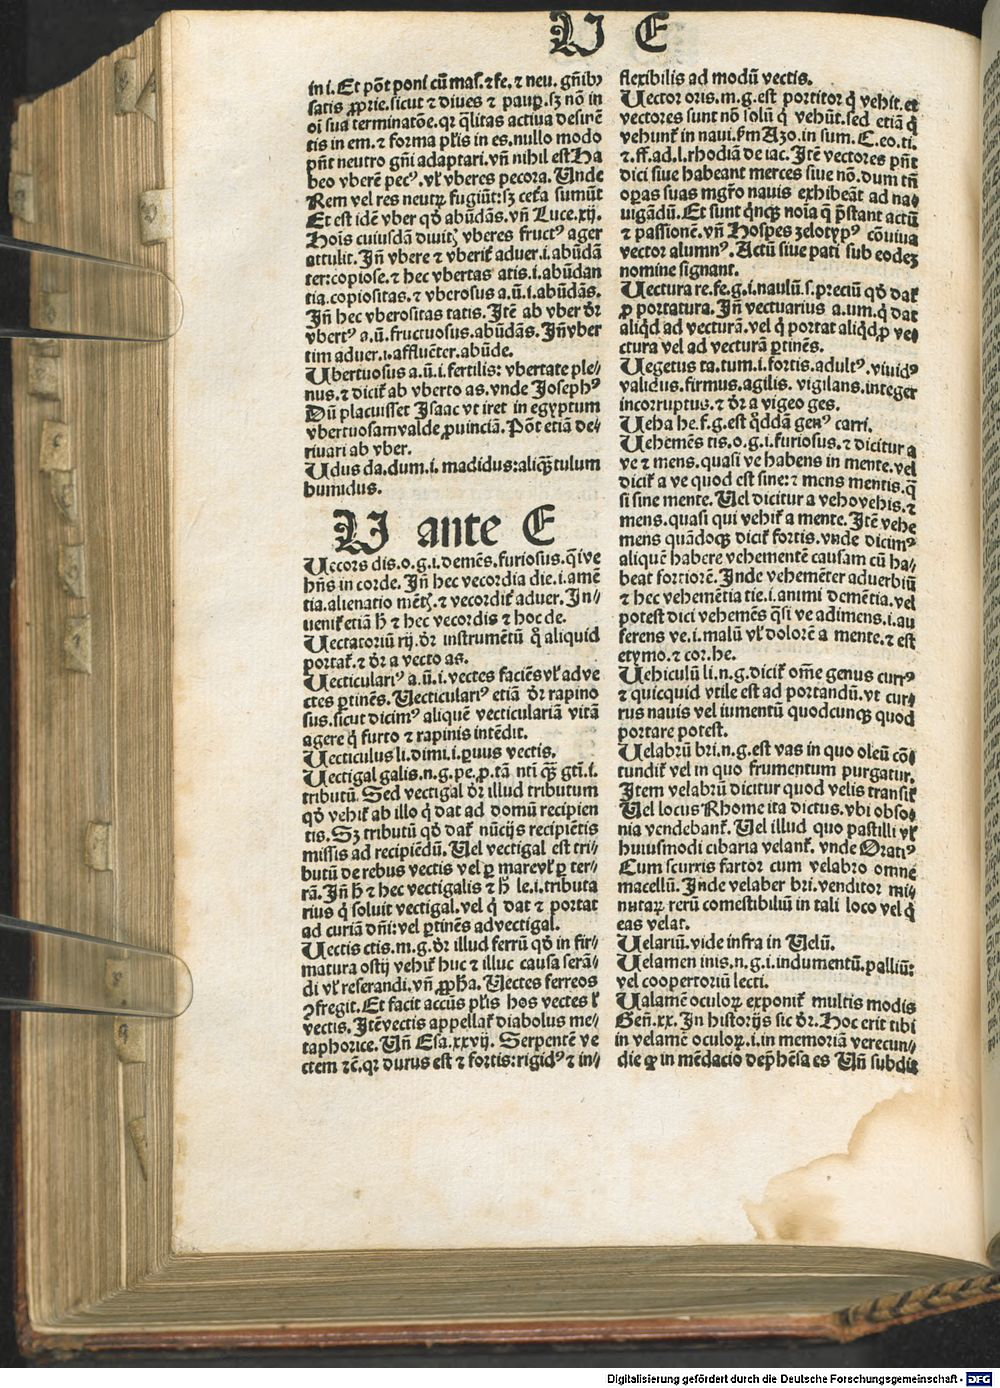 U E
in i. Et pōt poni cū mas. ⁊ fe. ⁊ neu. gn̄ibꝫ
satis ꝓprie. sicut ⁊ diues ⁊ paup̲. sꝫ nō in
oī sua terminatōe. qr q̄litas actiua desinē
tis in em. ⁊ forma pl̄is in es. nullo modo
pn̄t neutro gn̄i adaptari. vn̄ nihil est Ha
beo vberē pecꝰ. vl̓ vberes pecora. Unde
Rem vel res neutꝝ fugiūt: sꝫ cet̓a sumūt
Et est idē vber qđ abūdās. vn̄ Luce. xij.
Hoīs cuiusdā diuitꝭ vberes fructꝰ ager
attulit. Jn̄ vbere ⁊ vberit̓ aduer. i. abūdā
ter: copiose. ⁊ hec vbertas atis. i. abūdan
tia. copiositas. ⁊ vberosus a. ū. i. abūdās.
Jn̄ hec vberositas tatis. Jtē ab vber dr̄
vbertꝰ a. ū. fructuosus. abūdās. Jn̄ vber
tim aduer. i. affluēter. abūde.
Ubertuosus a. ū. i. fertilis: vbertate ple⸗
nus. ⁊ dicit̓ ab vberto as. vnde Josephꝰ
Dū placuisset Jsaac vt iret in egyptum
vbertuosam valde ꝓuinciā. Pōt etiā de⸗
riuari ab vber.
Udus da. dum. i. madidus: aliqꝫtulum
humidus.
U ante E
Uecors dis. o. g. i. demēs. furiosus. q̄si ve
hn̄s in corde. Jn̄ hec vecordia die. i. amē
tia. alienatio mētꝭ. ⁊ vecordit̓ aduer. Jn⸗
uenit̓ etiā h̄ ⁊ hec vecordis ⁊ hoc de.
Uectatoriū rij. dr̄ instrumētū q̊ aliquid
portat̓. ⁊ dr̄ a vecto as.
Uecticulariꝰ a. ū. i. vectes faciēs vl̓ ad ve
ctes ꝑtinēs. Uecticulariꝰ etiā dr̄ rapino
sus. sicut dicimꝰ aliquē vecticulariā vitā
agere q̇ furto ⁊ rapinis intēdit.
Uecticulus li. dimi. i. ꝑuus vectis.
Uectigal galis. n. g. pe. ꝓ. tā nt̄i qꝫ gt̄i. i.
tributū. Sed vectigal dr̄ illud tributum
qđ vehit̓ ab illo q̇ dat ad domū recipien
tis. Sꝫ tributū qđ dat̓ nūcijs recipiētis
missis ad recipiēdū. Uel vectigal est tri⸗
butū de rebus vectis vel ꝑ mare vl̓ ꝑ ter⸗
rā. Jn̄ h̄ ⁊ hec vectigalis ⁊ h̄ le. i. tributa
rius q̇ soluit vectigal. vel q̇ dat ⁊ portat
ad curiā dn̄i: vel ꝑtinēs ad vectigal.
Uectis ctis. m. g. dr̄ illud ferrū qđ in fir⸗
matura ostij vehit̓ huc ⁊ illuc causa serā⸗
di vl̓ reserandi. vn̄ ꝓph̄a. Uectes ferreos
ꝯfregit. Et facit accūs pl̄is hos vectes vl̓
vectis. Jtē vectis appellat̓ diabolus me⸗
taphorice. Un̄ Esa. xxvij. Serpentē ve
ctem ⁊c̄. qr durus est ⁊ fortis: rigidꝰ ⁊ in⸗
flexibilis ad modū vectis.
Uector oris. m. g. est portitor q̇ vehit. et
vectores sunt nō solū q̇ vehūt. sed etiā q̇
vehunt̓ in naui. ẜm Azo. in sum. C. eo. ti.
⁊ ff. ad. l. rhodiā de iac. Jtē vectores pn̄t
dici siue habeant merces siue nō. dum tn̄
oꝑas suas mgr̄o nauis exhibeāt ad na⸗
uigādū. Et sunt q̇nqꝫ noīa q̄ p̄stant actū
⁊ passionē. vn̄ Hospes zelotypꝰ cōuiua
vector alumnꝰ. Actū siue pati sub eodeꝫ
nomine signant.
Uectura re. fe. g. i. naulū. s. preciū qđ dat̓
ꝓ portatura. Jn̄ vectuarius a. um. q̇ dat
aliq̇d ad vecturā. vel q̇ portat aliq̇d ꝓ ve⸗
ctura vel ad vecturā ꝑtinēs.
Uegetus ta. tum. i. fortis. adultꝰ. viuidꝰ
validus. firmus. agilis. vigilans. integer
incorruptus. ⁊ dr̄ a vigeo ges.
Ueha he. f. g. est q̄dā genꝰ carri.
Uehemēs tis. o. g. i. furiosus. ⁊ dicitur a
ve ⁊ mens. quasi ve habens in mente. vel
dicit̓ a ve quod est sine: ⁊ mens mentis. q̄
si sine mente. Uel dicitur a veho vehis. ⁊
mens. quasi qui vehit̓ a mente. Jtē vehe
mens quādoqꝫ dicit̓ fortis. vnde dicimꝰ
aliquē habere vehementē causam cū ha⸗
beat fortiorē. Jnde vehemēter aduerbiū
⁊ hec vehemētia tie. i. animi demētia. vel
potest dici vehemēs q̄si ve adimens. i. au
ferens ve. i. malū vl̓ dolorē a mente. ⁊ est
etymo. ⁊ cor. he.
Uehiculū li. n. g. dicit̓ om̄e genus currꝰ
⁊ quicquid vtile est ad portandū. vt cur⸗
rus nauis vel iumentū quodcunqꝫ quod
portare potest.
Uelabrū bri. n. g. est vas in quo oleū cō⸗
tundit̓ vel in quo frumentum purgatur.
Jtem velabrū dicitur quod velis transit̓
Uel locus Rhome ita dictus. vbi obso⸗
nia vendebant̓. Uel illud quo pastilli vl̓
huiusmodi cibaria velant̓. vnde Oratiꝰ
Cum scurris fartor cum velabro omne
macellū. Jnde velaber bri. venditor mi⸗
nutaꝝ rerū comestibiliū in tali loco vel q̇
eas velat.
Uelariū. vide infra in Uelū.
Uelamen inis. n. g. i. indumentū. palliū:
vel coopertoriū lecti.
Ualamē oculoꝝ exponit̓ multis modis
Gen̄. xx. Jn historijs sic dr̄. Hoc erit tibi
in velamē oculoꝝ. i. in memoriā verecun⸗
die ꝙ in mēdacio dep̄hēsa es Un̄ subdit̓
Digitalisierung gefördert durch die Deutsche Forschungsgemeinschaft - DFG